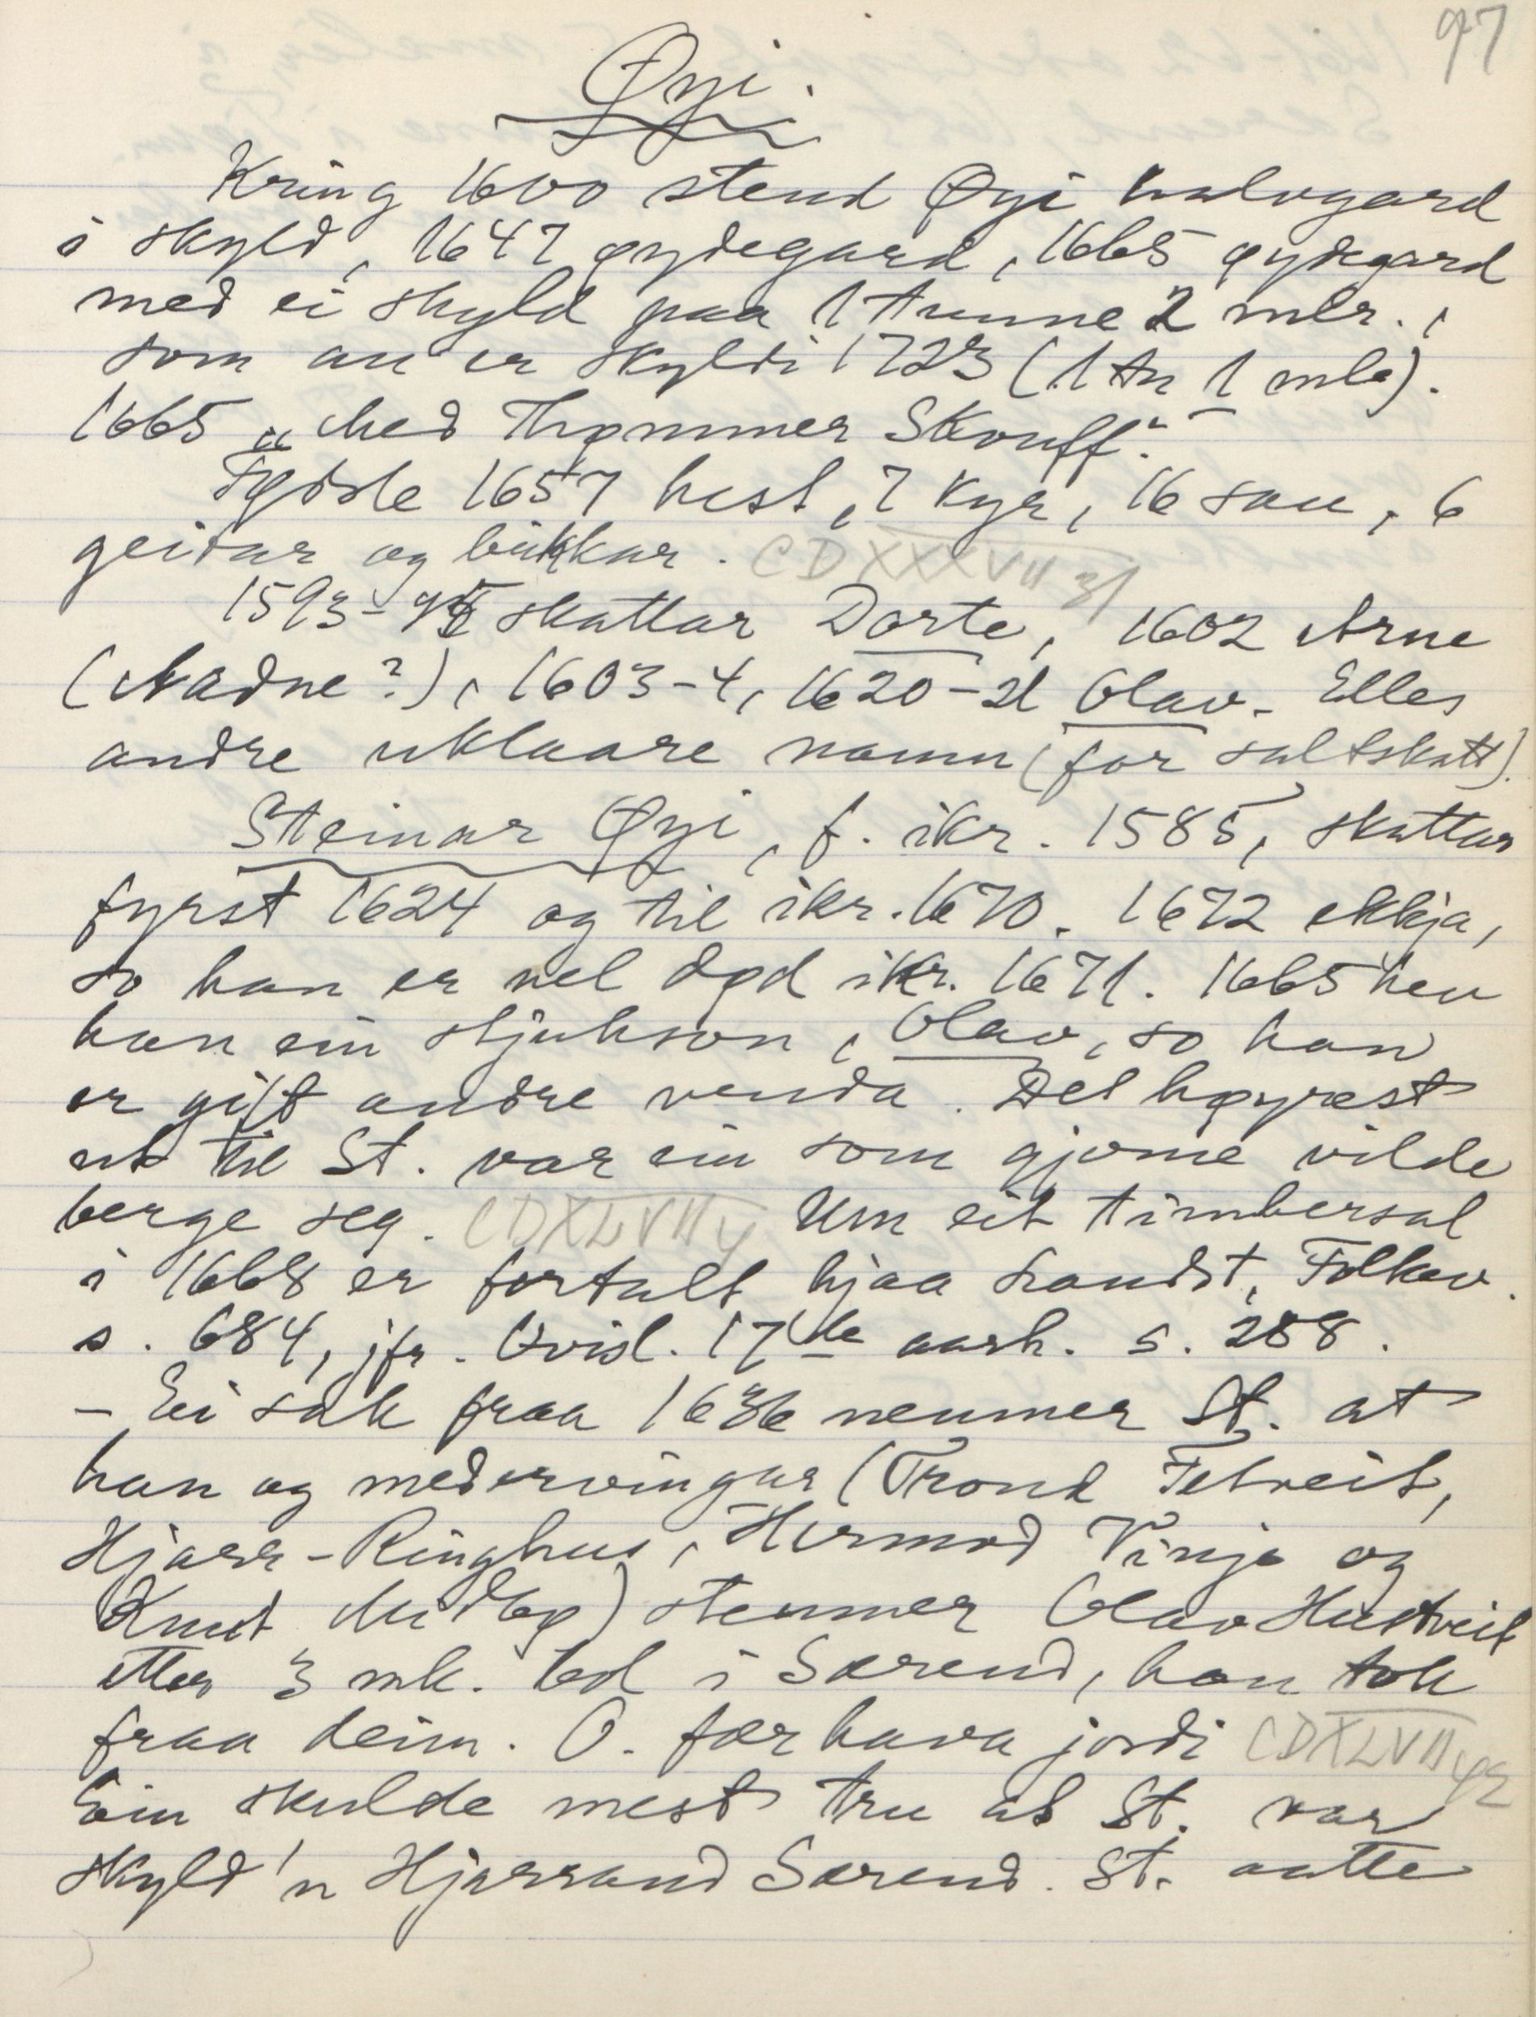 97
Øyi.
Kring 1600 stend Øyi halvgard
i skyld, 1647 øydegard, 1665 øydegard
med ei skyld paa 1 tunne 2 mlr.,
som au er skyldi 1723 (1 tn 1 mle).
1665 „Med Thømmer Skouff."
Fødsle 1657 hest, 7 kyr, 16 sau, 6
geitar og bukkar. CDXXXVII 31
1593-95 skattar Dorte, 1602 Arne
(Aadne?), 1603-4, 1620-21 Olav. Elles
andre uklaare namn (for saltskatt).
Steinar Øyi, f. ikr. 1585, skattar
fyrst 1624 og til ikr. 1670. 1672 ekkja,
so han er vel død ikr. 1671. 1665 hev
han ein stjukson, Olav, so han
er gift andre venda. Det høyrest
ut til St. var ein som gjerne vilde
berge seg. CDXLVII y Um eit timbersal
i 1668 er fortalt hjaa Landst. Folkev.
s. 684, jfr. Kvisl. 17de aarh. s. 288.
- Ei sak fraa 1636 nemner St. at
han og medervingar (Trond Fetveit,
Hjarr-Ringhus, Hermod Vinje og
Knut Midbø) stemner Olav Hustveit
etter 3 mk. bol i Sarend, han tok
fraa deim. O. fær hava jordi CDXLVII y2
Ein skulde mest tru at St. var
skyld 'n Hjarrand Sarend. St. aatte